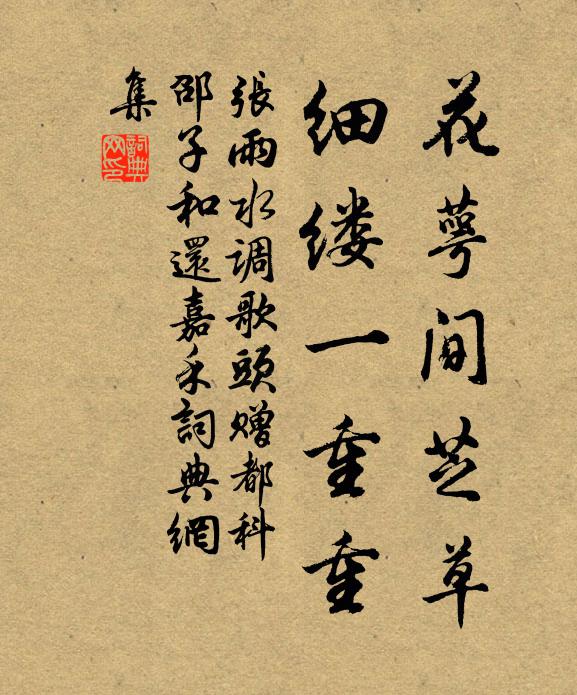 花萼间芝草
细缕一重重
張雨水調歌頭贈都科
邵子和還嘉禾詞典網
集
詞典网印